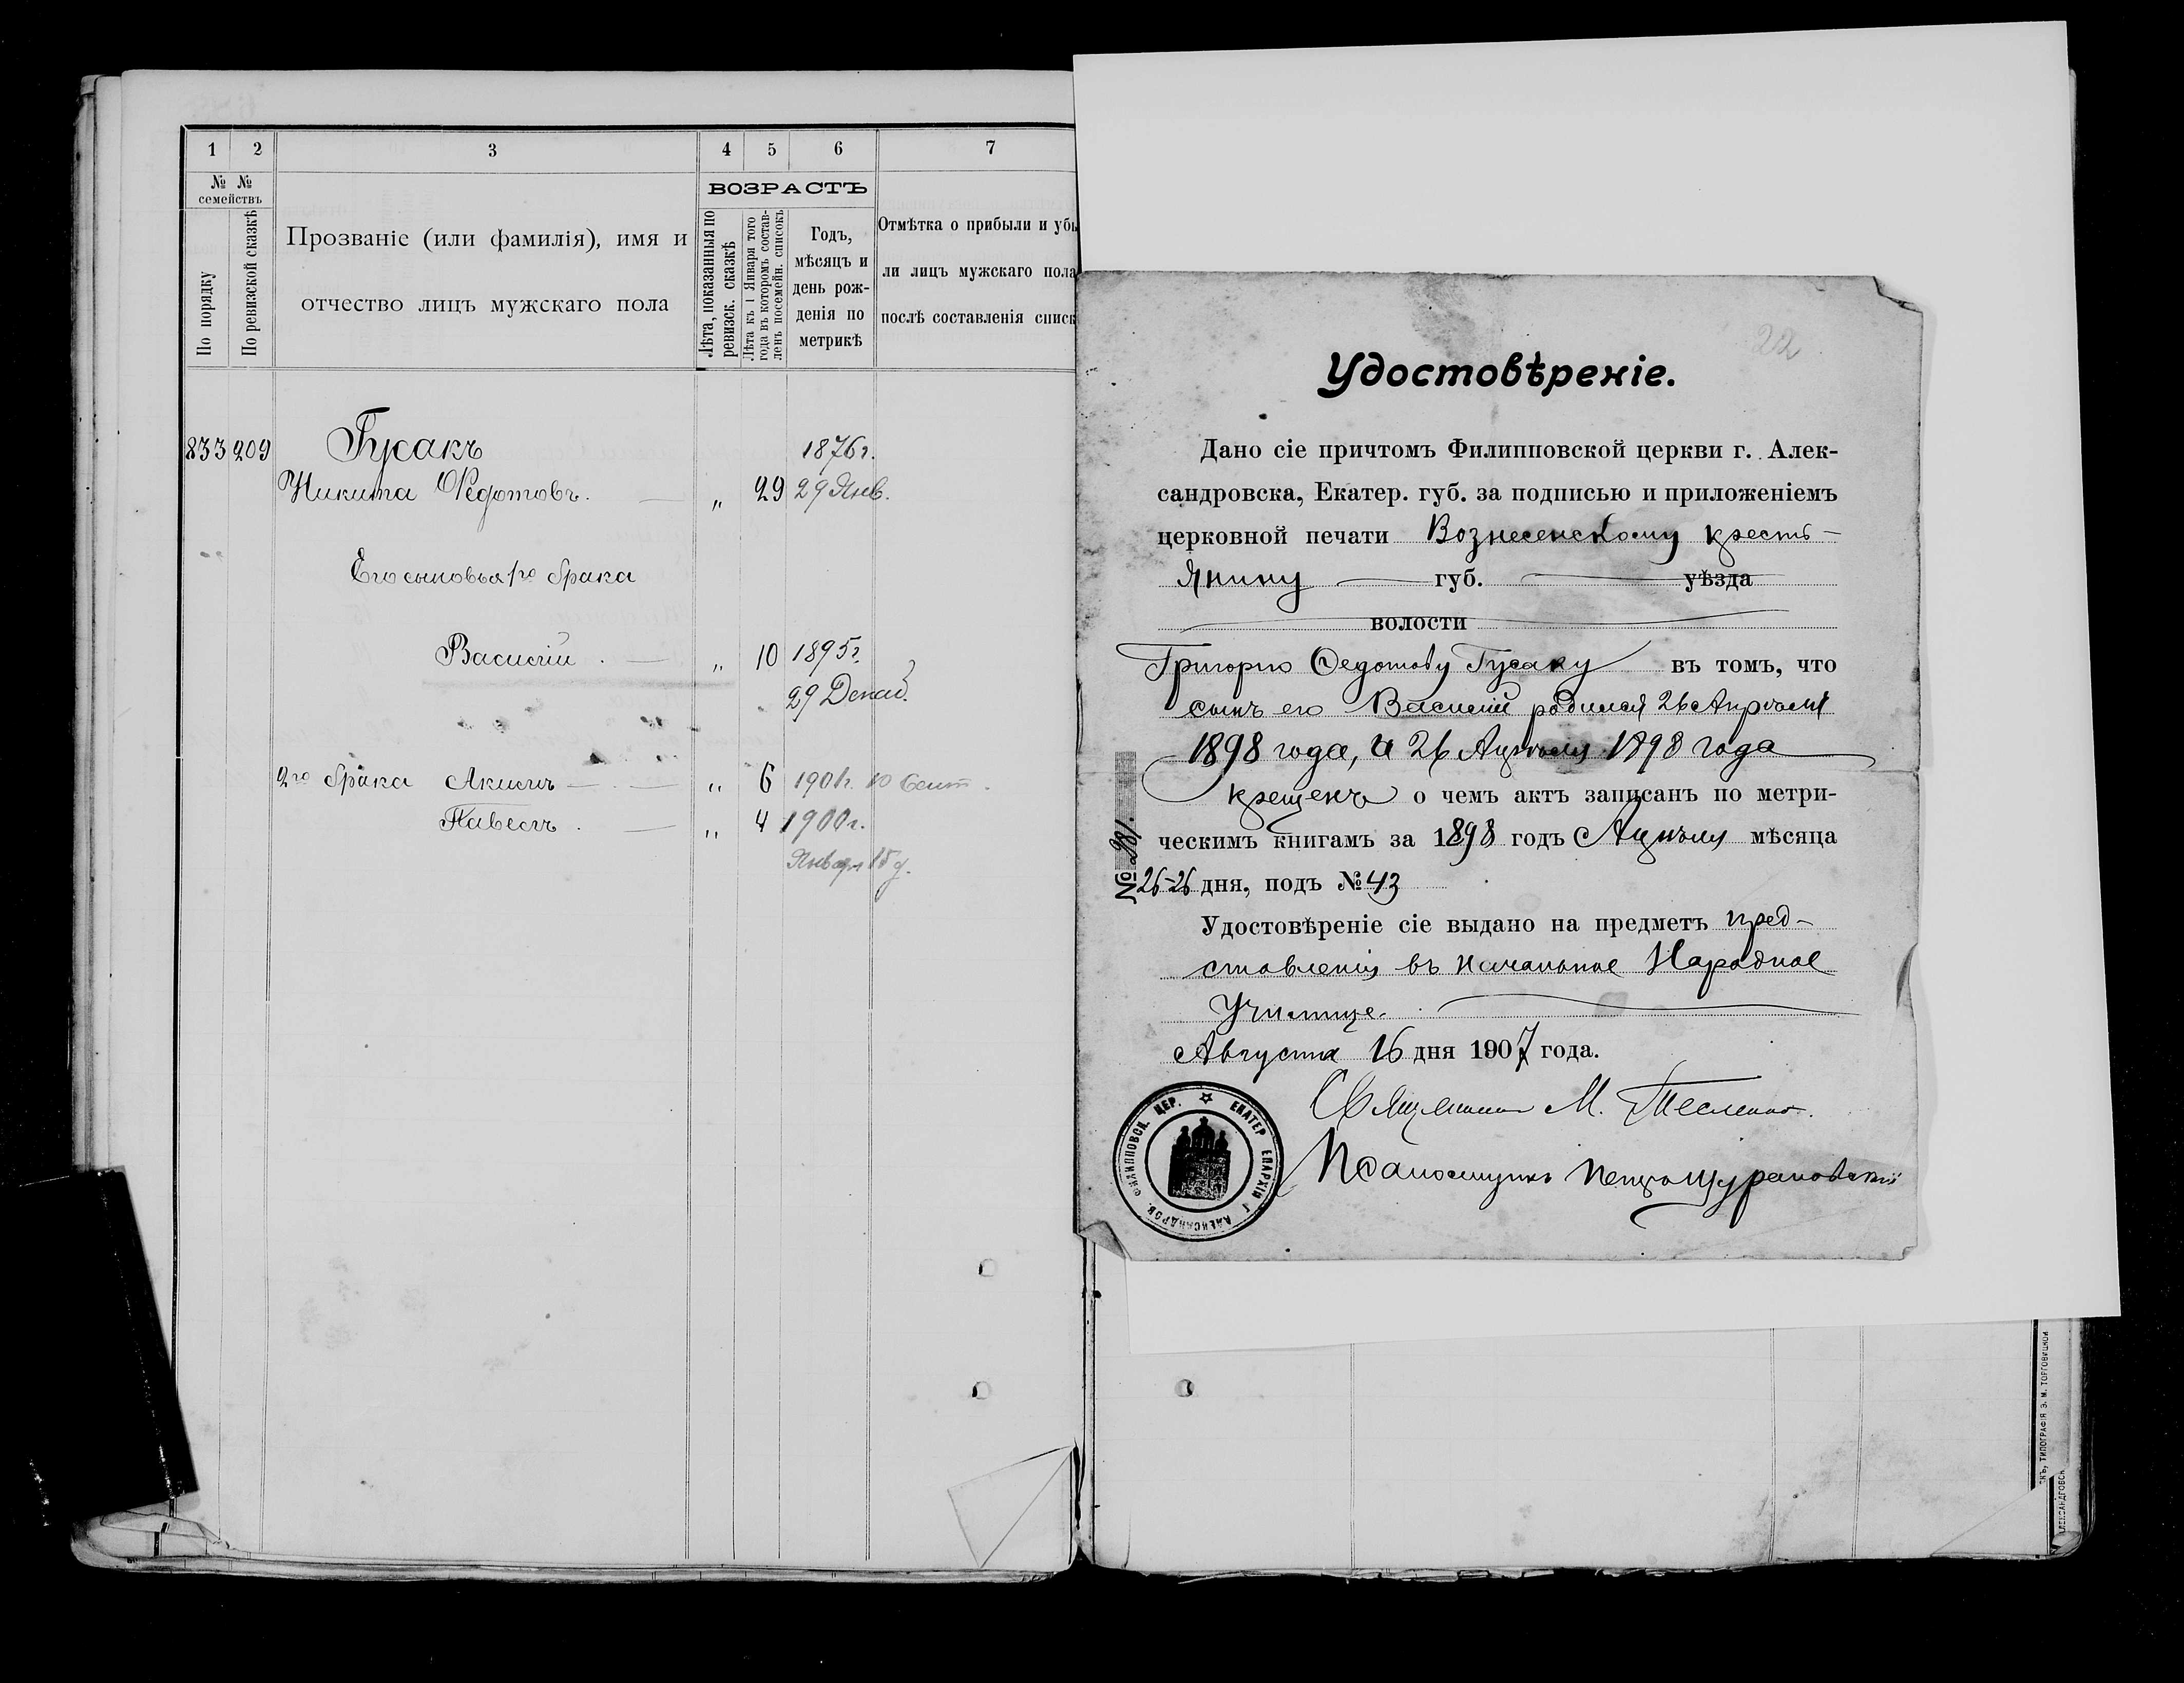 1 2 3 4 5 6 7
№ № семействъ
По порядку
По ревизской сказкѣ
Прозваніе (или фамилія), имя и
отчество лицъ мужскаго пола
ВОЗРАСТЪ
Лѣта, показанныя по
ревизск. сказкѣ
Лѣта къ 1 Января того
года въ которомъ состав-
ленъ посемейн. списокъ
Годъ,
мѣсяцъ и
день рож-
денія по
метрикѣ
Отмѣтка о прибыли и убы
ли лицъ мужскаго пола
послѣ составленія списк
833 209 Гусакъ 1876г.
Никита Федотовъ. — „ 29 29 Янв.
Его сыновья 1го брака
Василій . — „ 10 1895г.
29 Декаб.
2го брака Акимъ — . — „ 6 1901г. 10 Сент.
Павелъ . — „ 4 1900г.
Января 15 д.
22
Удостовѣреніе.
Дано сіе причтомъ Филипповской церкви г. Алек-
сандровска, Екатер. губ. за подписью и приложеніемъ
церковной печати Вознесенскому кресть-
янину губ. уѣзда
волости
Григорію Федотову Гусаку въ томъ, что
сынъ его Василій родился 26 Апрѣля
1898 года, а 26 Апрѣля 1898 года
крещенъ о чемъ актъ записанъ по метри-
ческимъ книгамъ за 1898 годъ Апрѣля мѣсяца
26-26 дня, подъ № 43
№ 281.
Удостовѣреніе сіе выдано на предметъ пред-
ставленія въ начальное Народное
Училище.
Августа 16 дня 1907 года.
Священникъ М. Тесленко.
Псаломщикъ Петро
ФИЛИППОВСК. ЦЕР. ЕКАТЕР ЕПАРХІИ Г АЛЕКСАНДРОВ.
ТИПОГРАФІЯ Э. М. ТОРГОВИЦКОЙ